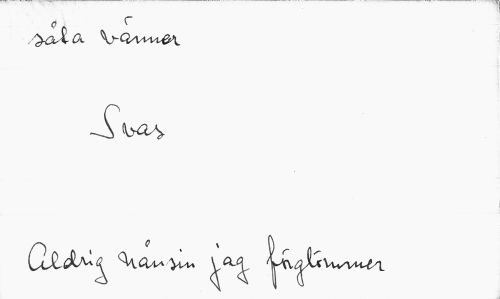 såta vänner
Svas
Aldrig nånsin jag förglömmer